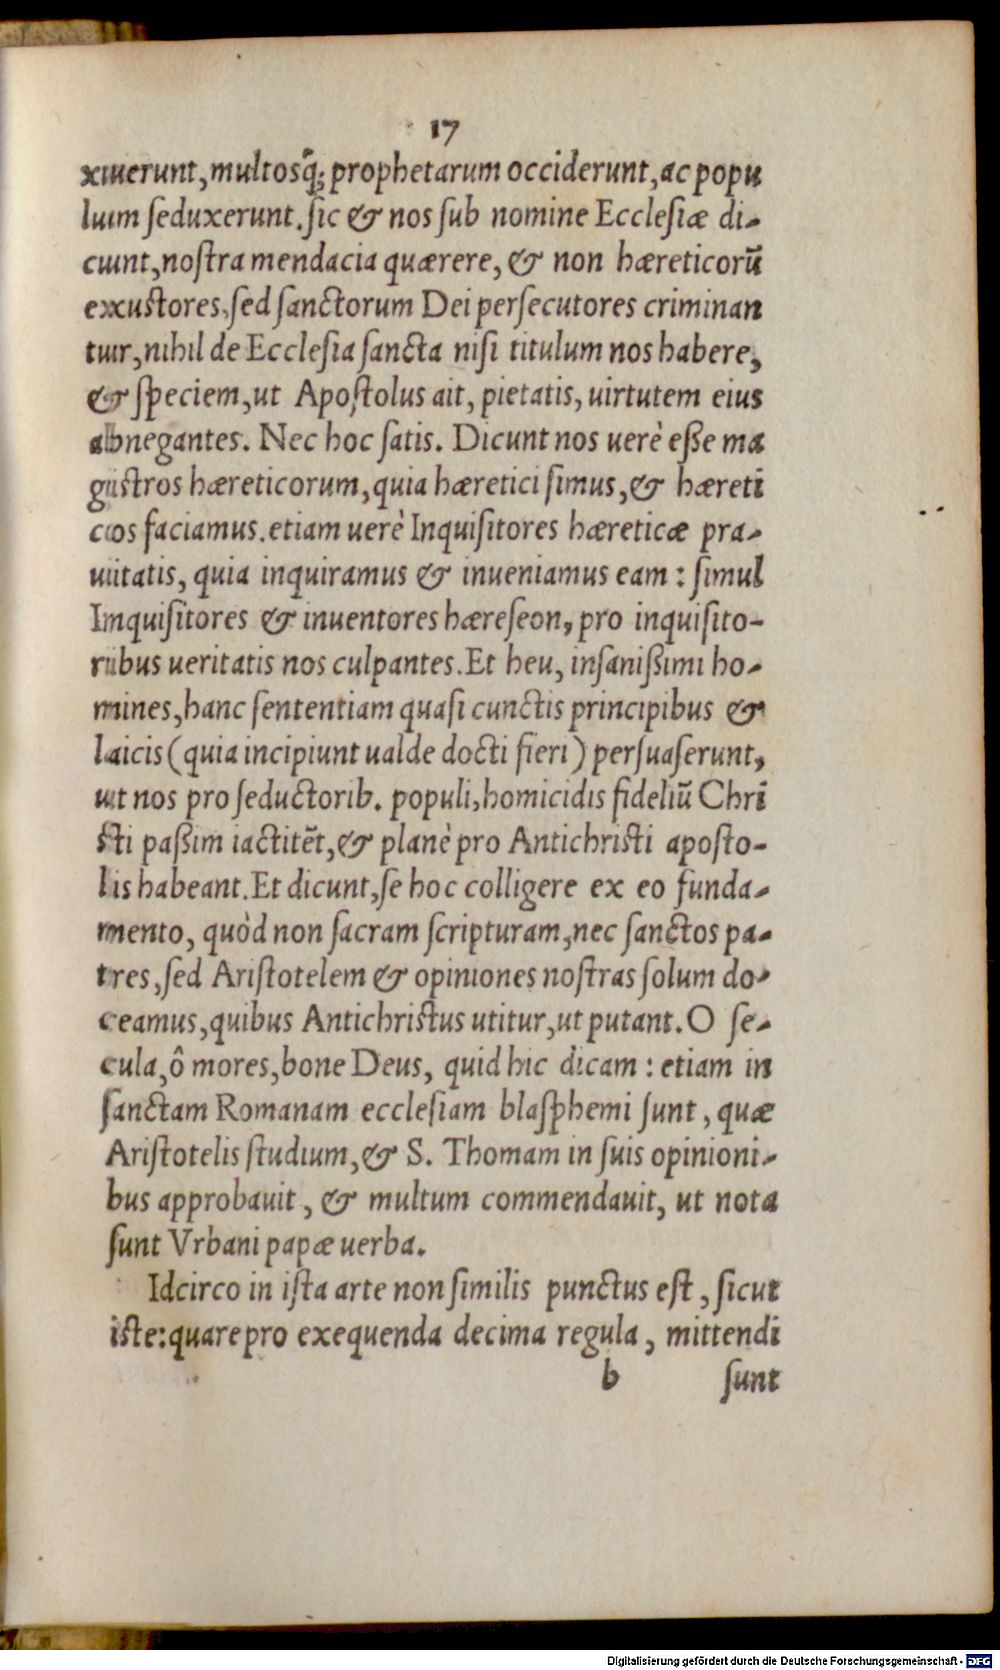 17
xuerunt, multosq́; prophetarum occiderunt, ac popu
lum ſeduxerunt. ſic & nos ſub nomine Eccleſiæ di-
cunt, noſtra mendacia quærere, & non hæreticorũ
exustores, ſed ſanctorum Dei perſecutores criminan
tur, nihil de Eccleſia ſancta niſi titulum nos habere,
& ſpeciem, ut Apoſtolus ait, pietatis, uirtutem eius
abnegantes. Nec hoc ſatis. Dicunt nos uerè eſſe ma
gistros hæreticorum, quia hæretici ſimus, & hæreti
cos faciamus. etiam uerè Inquiſitores hæreticæ pra-
uitatis, quia inquiramus & inueniamus eam: ſimul
Inquiſitores & inuentores hæreſeon, pro inquiſito-
ribus ueritatis nos culpantes. Et heu, inſaniſſimi ho-
mines, hanc ſententiam quaſi cunctis principibus &
laicis (quia incipiunt ualde docti fieri) perſuaſerunt,
ut nos pro ſeductorib. populi, homicidis fideliũ Chri
ſti paſſim iactitẽt, & planè pro Antichriſti apoſto-
lis habeant. Et dicunt, ſe hoc colligere ex eo funda-
mento, quòd non ſacram ſcripturam, nec ſanctos pa-
tres, ſed Ariſtotelem & opiniones noſtras ſolum do-
ceamus, quibus Antichriſtus utitur, ut putant. O ſe-
cula, ô mores, bone Deus, quid hic dicam: etiam in
ſanctam Romanam eccleſiam blaſphemi ſunt, quæ
Ariſtotelis ſtudium, & S. Thomam in ſuis opinioni-
bus approbauit, & multum commendauit, ut nota
ſunt Vrbani papæ uerba.
Idcirco in iſta arte non ſimilis punctus eſt, ſicut
iſte: quare pro exequenda decima regula, mittendi
b ſunt
Digitalisierung gefördert durch die Deutsche Forschungsgemeinschaft - DFG